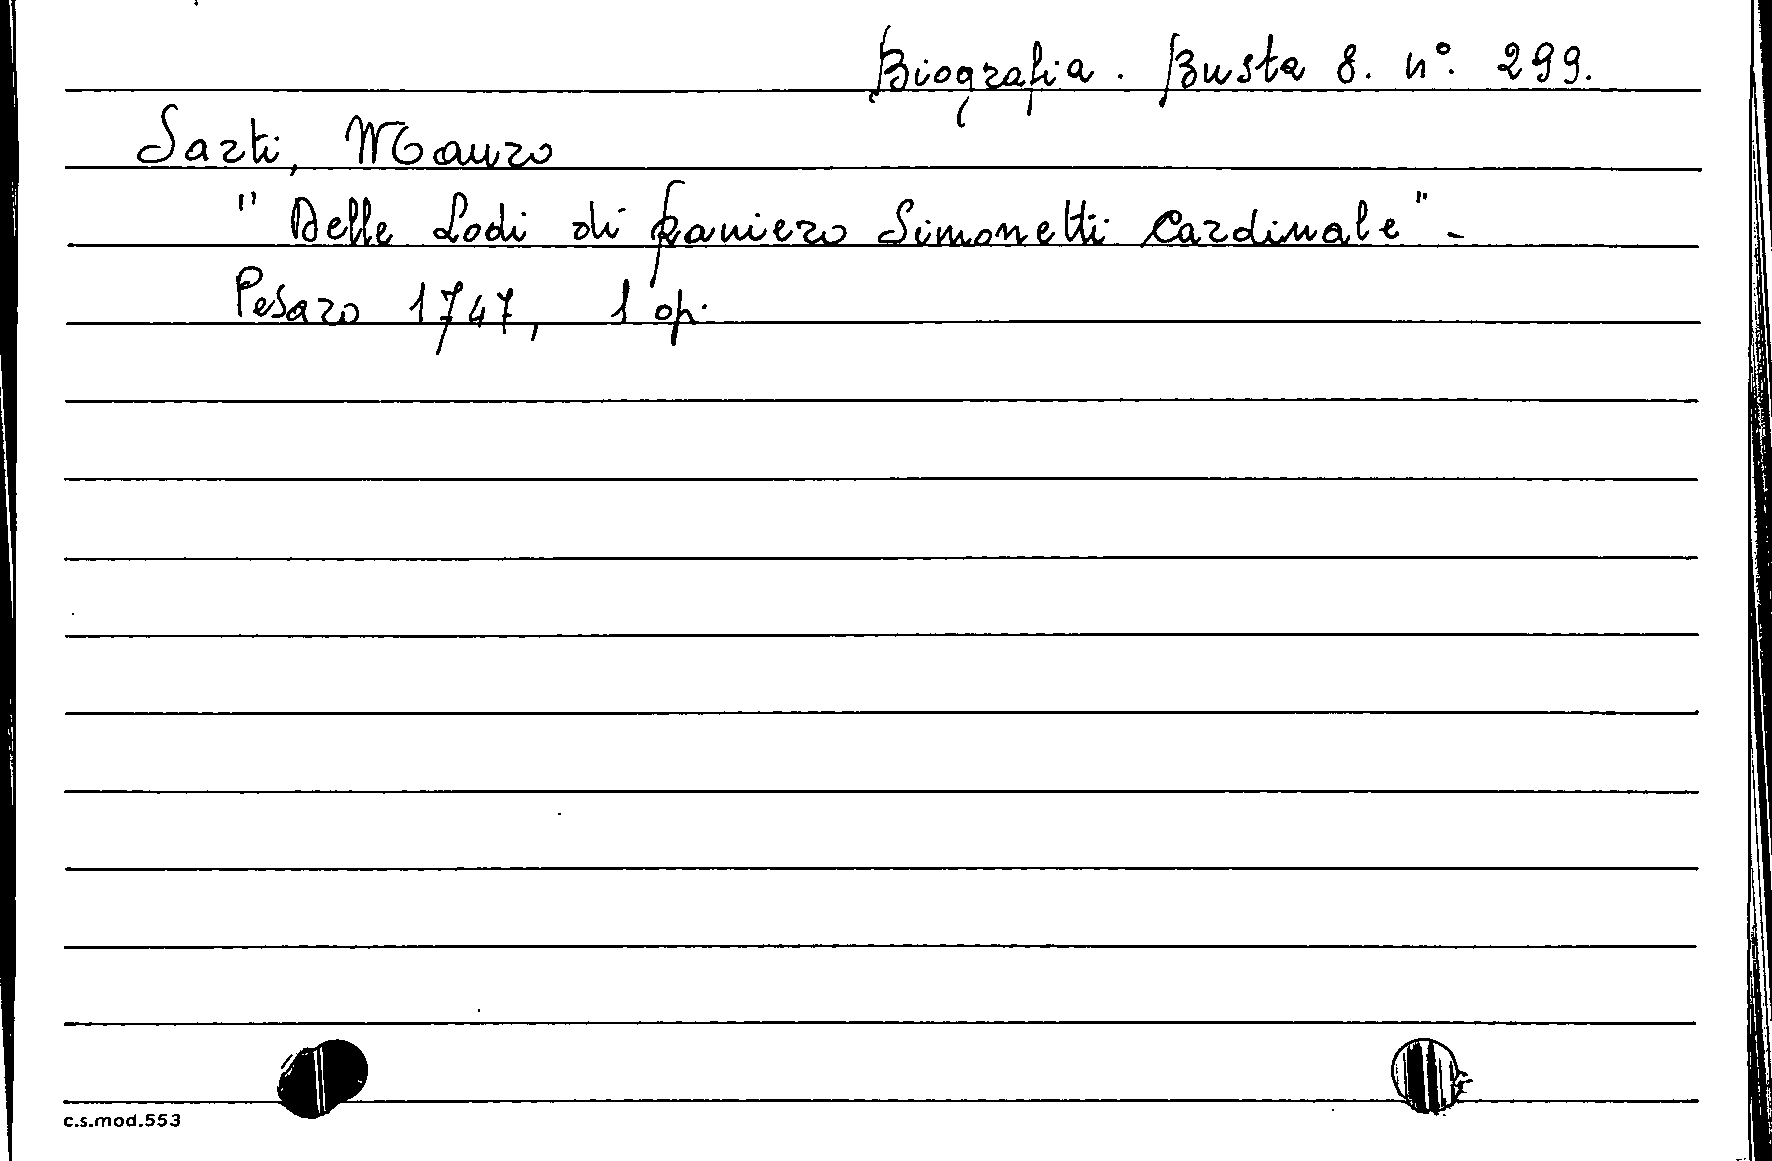 Biografia. Busta 8. n°. 299.
Sarti, Mauro
"Delle Lodi di Raniero Simonetti Cardinale" -
Pesaro 1747, 1 op.
c.s.mod.553